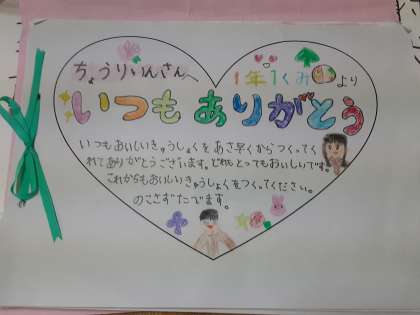 ちょうりいんさんへ
1年1くみより
いつもありがとう
いつもおいしいきゅうしょくをあさ早くからつくってく
れてありがとうございます。どれもとってもおいしいです。
これからもおいしいきゅうしょくをつくってください。
のこさずたべます。